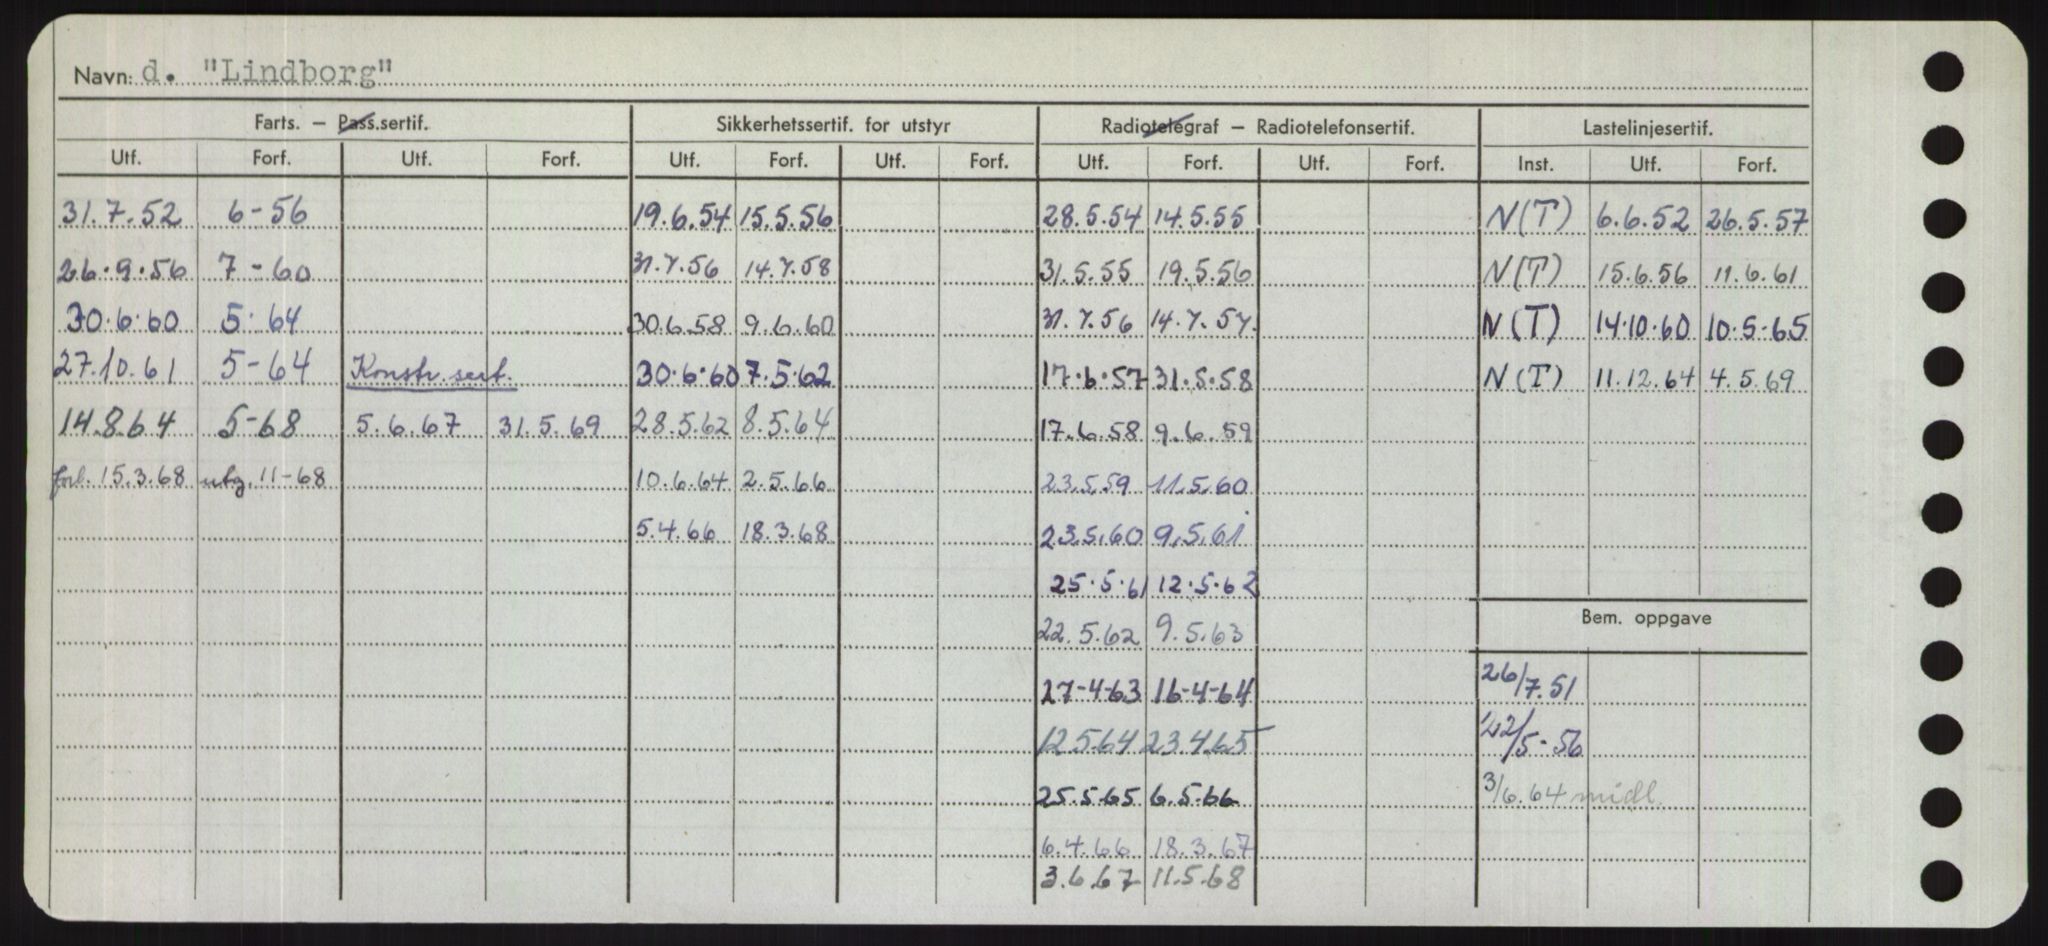 Navn: d. "Lindborg"
Farts. — Pass.sertif. Sikkerhetssertif. for utstyr Radiotelegraf — Radiotelefonsertif. Lastelinjesertif.
Utf. Forf. Utf. Forf. Utf. Forf. Utf. Forf. Utf. Forf. Utf. Forf. Inst. Utf. Forf.
31.7.52 6-56 19.6.54 15.5.56 28.5.54 14.5.55 N(T) 6.6.52 26.5.57
26.9.56 7-60 31.7.56 14.7.58 31.5.55 19.5.56 N(T) 15.6.56 11.6.61
30.6.60 5-64 30.6.58 9.6.60 31.7.56 14.7.57 N(T) 14.10.60 10.5.65
27.10.61 5-64 Konstr. sert. 30.6.60 7.5.62 17.6.57 31.5.58 N(T) 11.12.64 4.5.69
14.8.64 5-68 5.6.67 31.5.69 28.5.62 8.5.64 17.6.58 9.6.59
forl. 15.3.68 utg. 11-68 10.6.64 2.5.66 23.5.59 11.5.60
5.4.66 18.3.68 23.5.60 9.5.61
25.5.61 12.5.62
Bem. oppgave
22.5.62 9.5.63
27-4-63 16-4-64 26/7.51
12564 23465 22/5-56
25.5.65 6.5.66 3/6.64 midl.
6.4.66 18.3.67
3.6.67 11.5.68